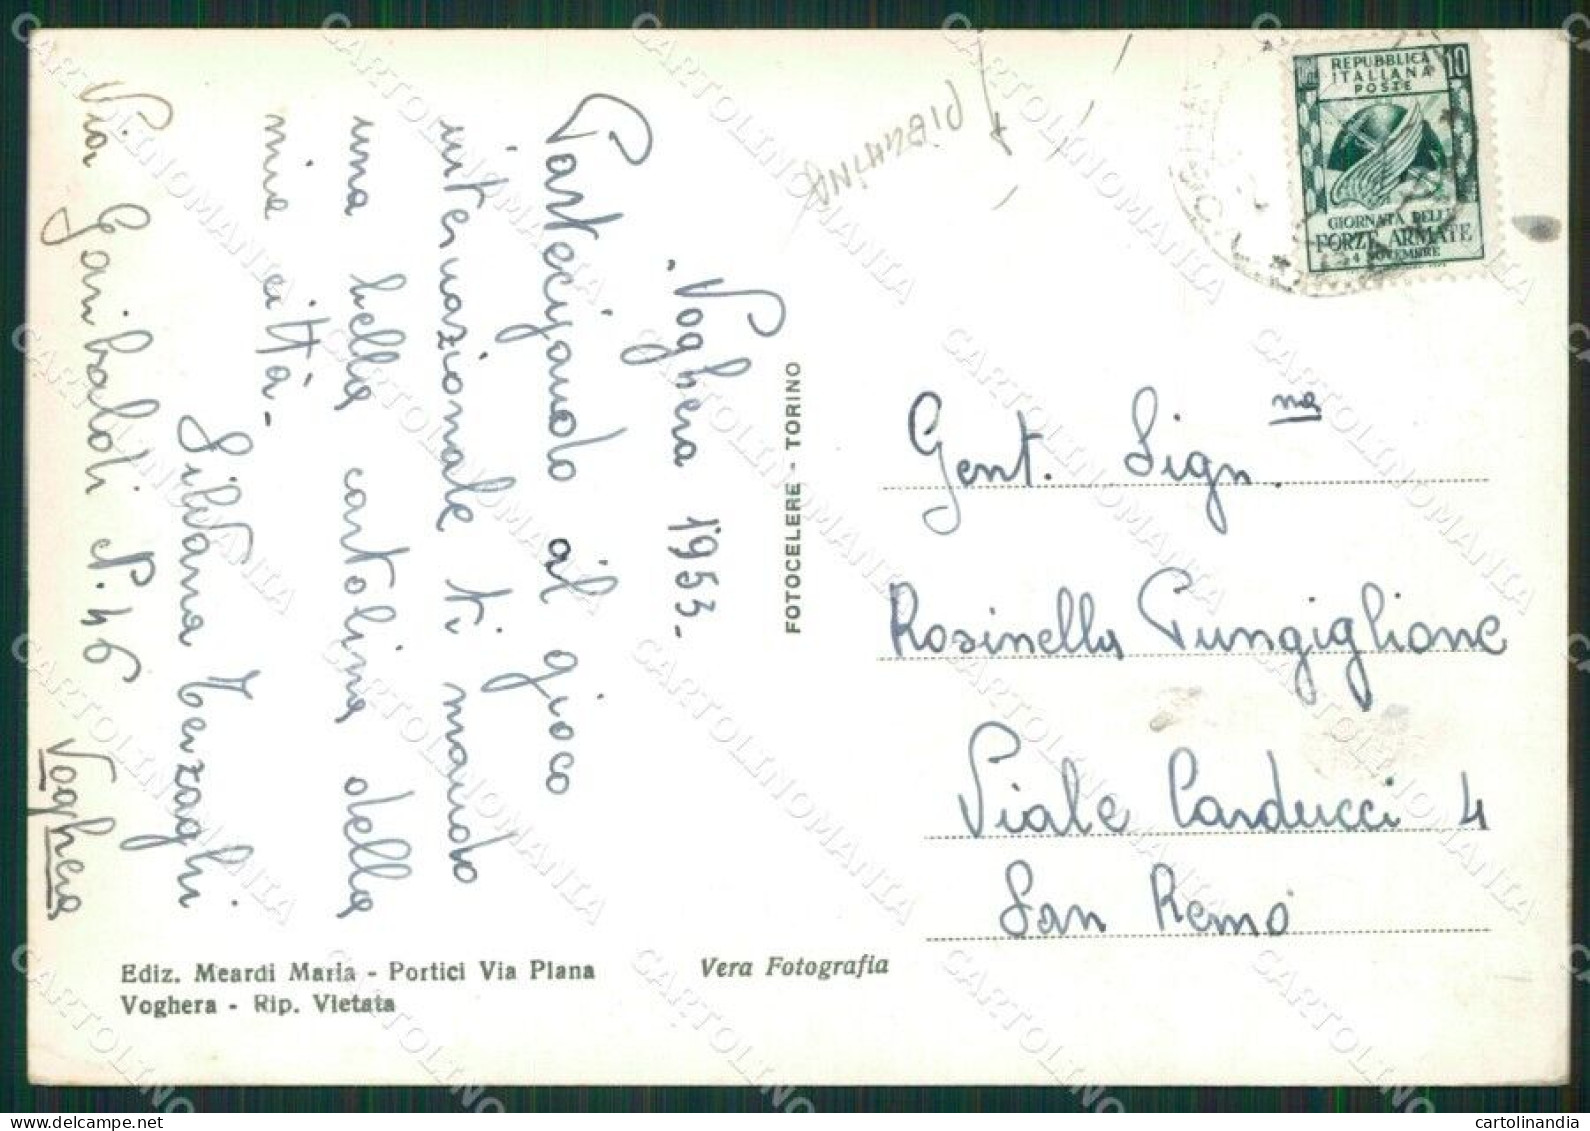 Voghera 1953.
Partecipando al gioco
internazionale ti mando
una bella cartolina della
mia città.
Silvana Terzaghi
Via Garibaldi N. 46
Voghera
FOTOCELERE - TORINO
REPUBBLICA
ITALIANA
POSTE
10
GIORNATA DELLE
FORZE ARMATE
4 NOVEMBRE
Gent. Sign.na
Rosinella Pungiglione
Viale Carducci 4
San Remo
Ediz. Meardi Maria - Portici Via Plana
Voghera - Rip. Vietata
Vera Fotografia
CARTOLINOMANIA
cartolinandia